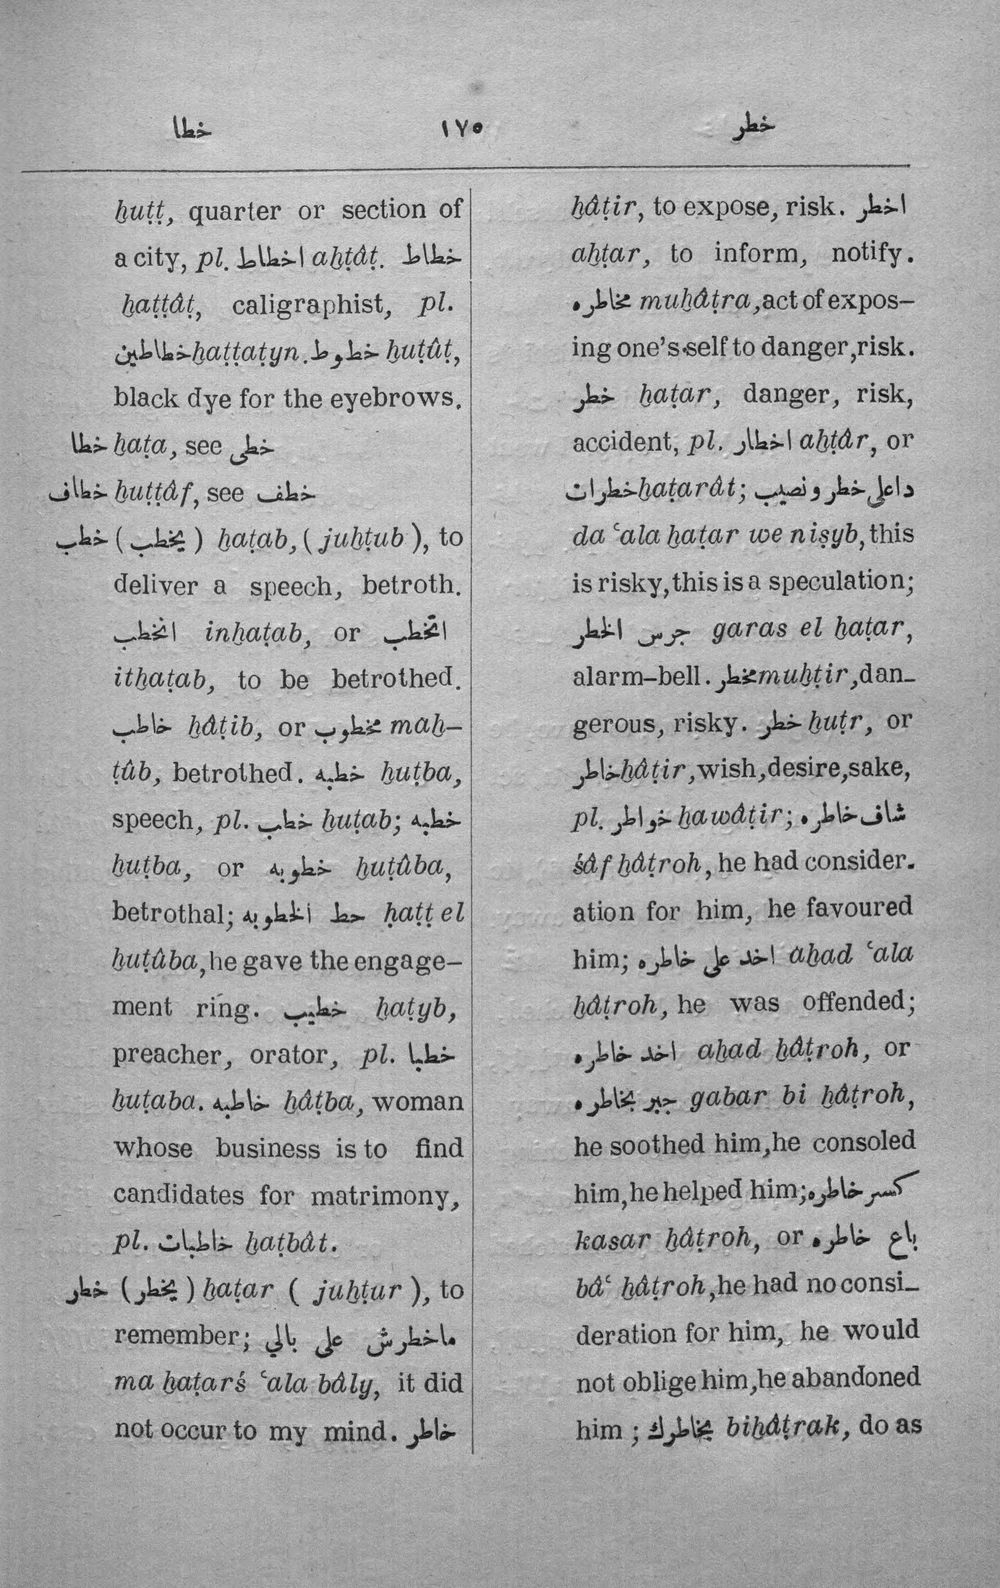 خطا ١٧٥ خطر
ḫuṭṭ, quarter or section of
a city, pl. اخطاط aḫṭâṭ. خطاط
ḫaṭṭâṭ, caligraphist, pl.
خطاطين ḫaṭṭaṭyn. خطوط ḫuṭûṭ,
black dye for the eyebrows.
خطا ḫaṭa, see خطى
خطاف ḫuṭṭâf, see خطف
خطب (يخطب) ḫaṭab, (juḫṭub), to
deliver a speech, betroth.
انخطب inḫaṭab, or اتخطب
itḫaṭab, to be betrothed.
خاطب ḫâṭib, or مخطوب maḫ–
ṭûb, betrothed. خطبه ḫuṭba,
speech, pl. خطب ḫuṭab; خطبه
ḫuṭba, or خطوبه ḫuṭûba,
betrothal; حط الخطوبه ḥaṭṭ el
ḫuṭûba, he gave the engage–
ment ring. خطيب ḫaṭyb,
preacher, orator, pl. خطبا
ḫuṭaba. خاطبه ḫâṭba, woman
whose business is to find
candidates for matrimony,
pl. خاطبات ḫaṭbât.
خطر (يخطر) ḫaṭar (juḫṭur), to
remember; ماخطرش على بالي
ma ḫaṭarś ʿala bâly, it did
not occur to my mind. خاطر
ḫâṭir, to expose, risk. اخطر
aḫṭar, to inform, notify.
مخاطره muḫâṭra, act of expos–
ing one's self to danger, risk.
خطر ḫaṭar, danger, risk,
accident, pl. اخطار aḫṭâr, or
خطرات ḫaṭarât; داعلى خطر و نصيب
da ʿala ḫaṭar we niṣyb, this
is risky, this is a speculation;
جرس الخطر garas el ḫaṭar,
alarm–bell. مخطر muḫṭir, dan–
gerous, risky. خطر ḫuṭr, or
خاطر ḫâṭir, wish, desire, sake,
pl. خواطر ḫawâṭir; شاف خاطره
śâf ḫâṭroh, he had consider-
ation for him, he favoured
him; اخد على خاطره aḫad ʿala
ḫâṭroh, he was offended;
اخد خاطره aḫad ḫâṭroh, or
جبر بخاطره gabar bi ḫâṭroh,
he soothed him, he consoled
him, he helped him; كسر خاطره
kasar ḫâṭroh, or باع خاطره
bâʿ ḫâṭroh, he had no consi–
deration for him, he would
not oblige him, he abandoned
him ; بخاطرك biḫâṭrak, do as